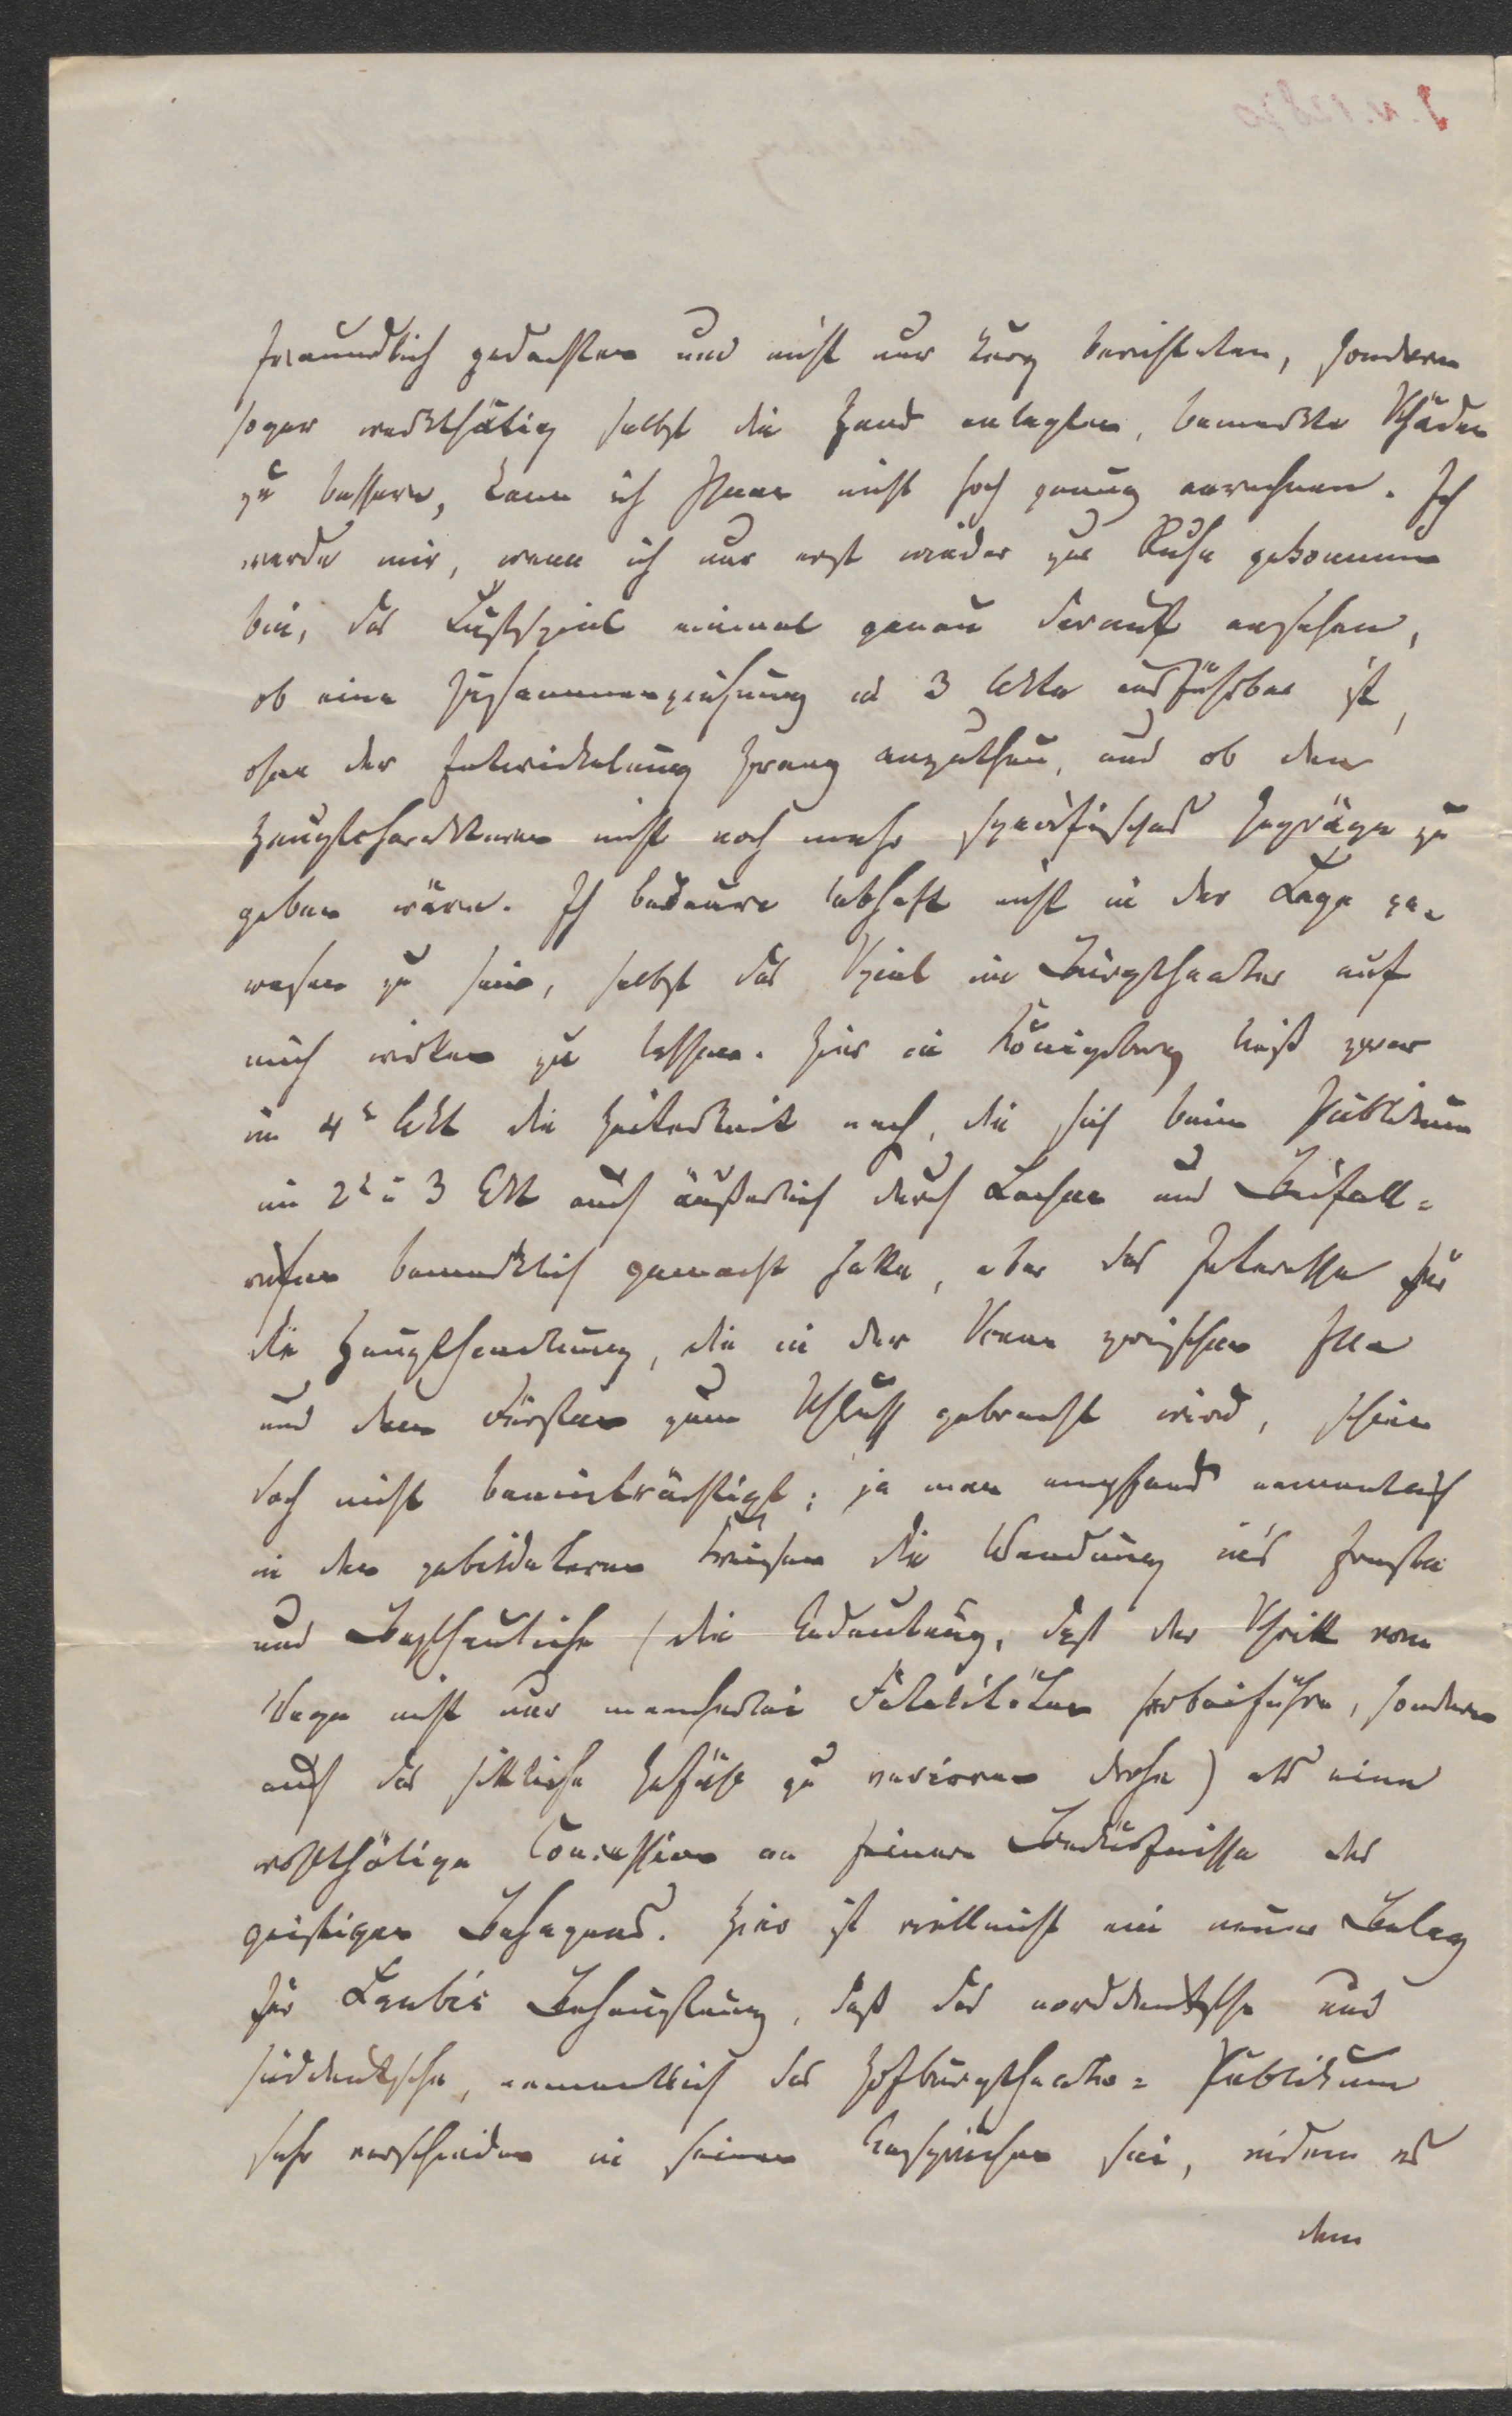 freundlich gedachten und nicht nur karg berichteten, sondern
sogar werkthätig selbst die Hand anlegten, bemerkte Schäden
zu bessern, kann ich Ihnen nicht hoch genug anrechnen. Ich
werde mir, wenn ich nur erst wieder zur Ruhe gekommen
bin, das Lustspiel einmal genau darauf ansehen,
ob eine Zusammenziehung in 3 Akte ausführbar ist,
ohne der Entwickelung Zwang anzuthun, und ob den
Hauptcharakteren nicht noch mehr spezifisches Gepräge zu
geben wäre. Ich bedaure lebhaft nicht in der Lage ge-
wesen zu sein, selbst das Spiel im Burgtheater auf
mich wirken zu lassen. Hier in Königsberg ließ zwar
im 4t Akt die Heiterkeit nach, die sich beim Publikum
im 2t u 3 Akt auch äußerlich durch Lachen und Beifall-
rufen bemerklich gemacht hatte, aber das Interesse für
die Haupthandlung, die in der Scene zwischen
und dem Fürsten zum Schluß gebracht wird, schien
doch nicht beeinträchtigt; ja man empfand namentlich
in den gebildeteren Kreisen die Wendung in's Ernste
und Beschauliche (die Andeutung, daß der Schritt vom
Wege nicht nur mancherlei Fatalitäten herbeiführe, sondern
auch das sittliche Gefühl zu verwirren drohe) als eine
wohlthätige Concession an feinere Bedürfnisse des
geistigen Behagens. Hier ist vielleicht ein neuer Beleg
für Laube's Behauptung, daß das norddeutsche und
süddeutsche, namentlich das Hofburgtheater-Publikum
sehr verschieden in seinen Ansprüchen sei, indem es
dem